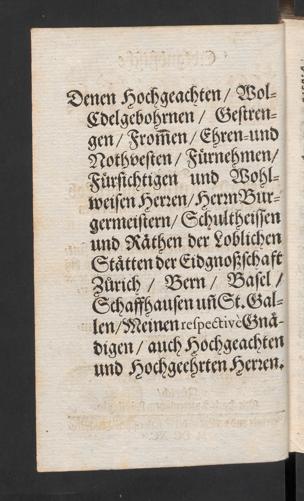 Denen Hochgeachten / Wol-
Edelgebohrnen / Gestren-
gen / From̃en / Ehren-und
Nothvesten / Fürnehmen/
Fürsichtigen und Wohl-
weisen Herzen/ Herrn Bur-
germeistern/ Schultheissen
und Räthen der Loblichen
Stätten der Eidgnoßschaft
Zürich / Bern / Basel /
Schaffhausen uñ St. Gal-
len/Meinen respectivè Gnä-
digen / auch Hochgeachten
und Hochgeehrten Herzen.